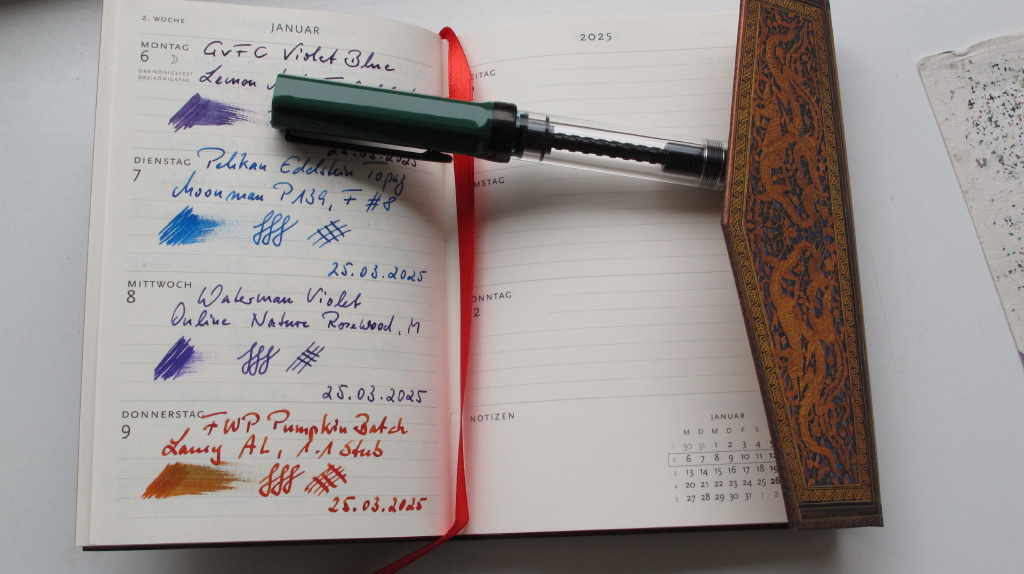 2. WOCHE
JANUAR
MONTAG
6
DREIKÖNIGSFEST
DREIKÖNIGSTAG
GvFC Violet Blue
Lemon
25.03.2025
DIENSTAG
7
Pelikan Edelstein Topaz
Moonman P139, F #8
25.03.2025
MITTWOCH
8
Waterman Violet
Online Nature Rosewood, M
25.03.2025
DONNERSTAG
9
FWP Pumpkin Batch
Lamy AL, 1.1 Stub
25.03.2025
2025
ITAG
MSTAG
ONNTAG
2
NOTIZEN
JANUAR
M D M D F S
1 30 31 1 2 3 4
2 6 7 8 9 10 11 12
3 13 14 15 16 17 18 19
4 20 21 22 23 24 25 26
5 27 28 29 30 31 1 2